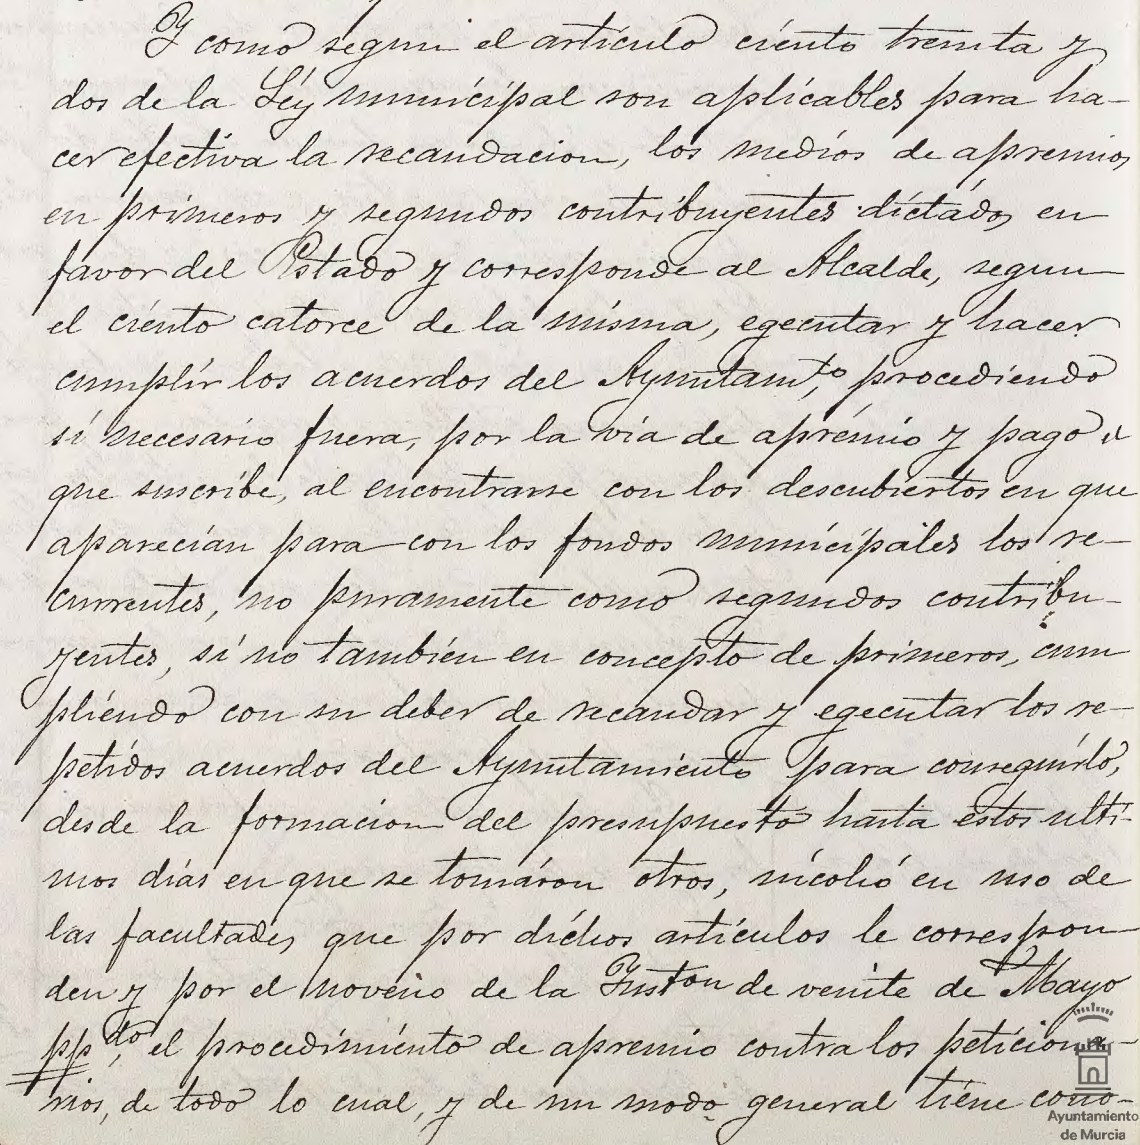 Y como segun el artículo ciento treinta y
dos de la Léy municipal son aplicables para ha-
cer efectiva la recaudacion, los medios de apremios
en primeros y segundos contribuyentes dictados en
favor del Estado y corresponde al Alcalde, segun
el ciento catorce de la misma, egecutar y hacer
cumplir los acuerdos del Ayuntamto, procediendo
si necesario fuera, por la via de aprémio y pago el
que suscribe, al encontrarse con los descubiertos en que
aparecían para con los fondos municipales los re-
currentes, no puramente como segundos contribu-
yentes, si no tambien en concepto de primeros, cum
pliendo con su deber de recaudar y egecutar los re-
petidos acuerdos del Ayuntamiento para conseguirlo,
desde la formacion del presupuesto hasta estos ulti-
mos dias en que se tomáron otros, incohó en uso de
las facultades que por díchos artículos le correspon
den y por el noveno de la Ynston de veinte de Mayo
ppdo, el procedimiénto de apremio contra los peticiona-
rios, de todo lo cual, y de un modo general tiéne cono-
Ayuntamiento
de Murcia